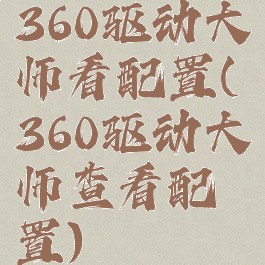 360驱动大
师看配置(
360驱动大
师查看配
置)